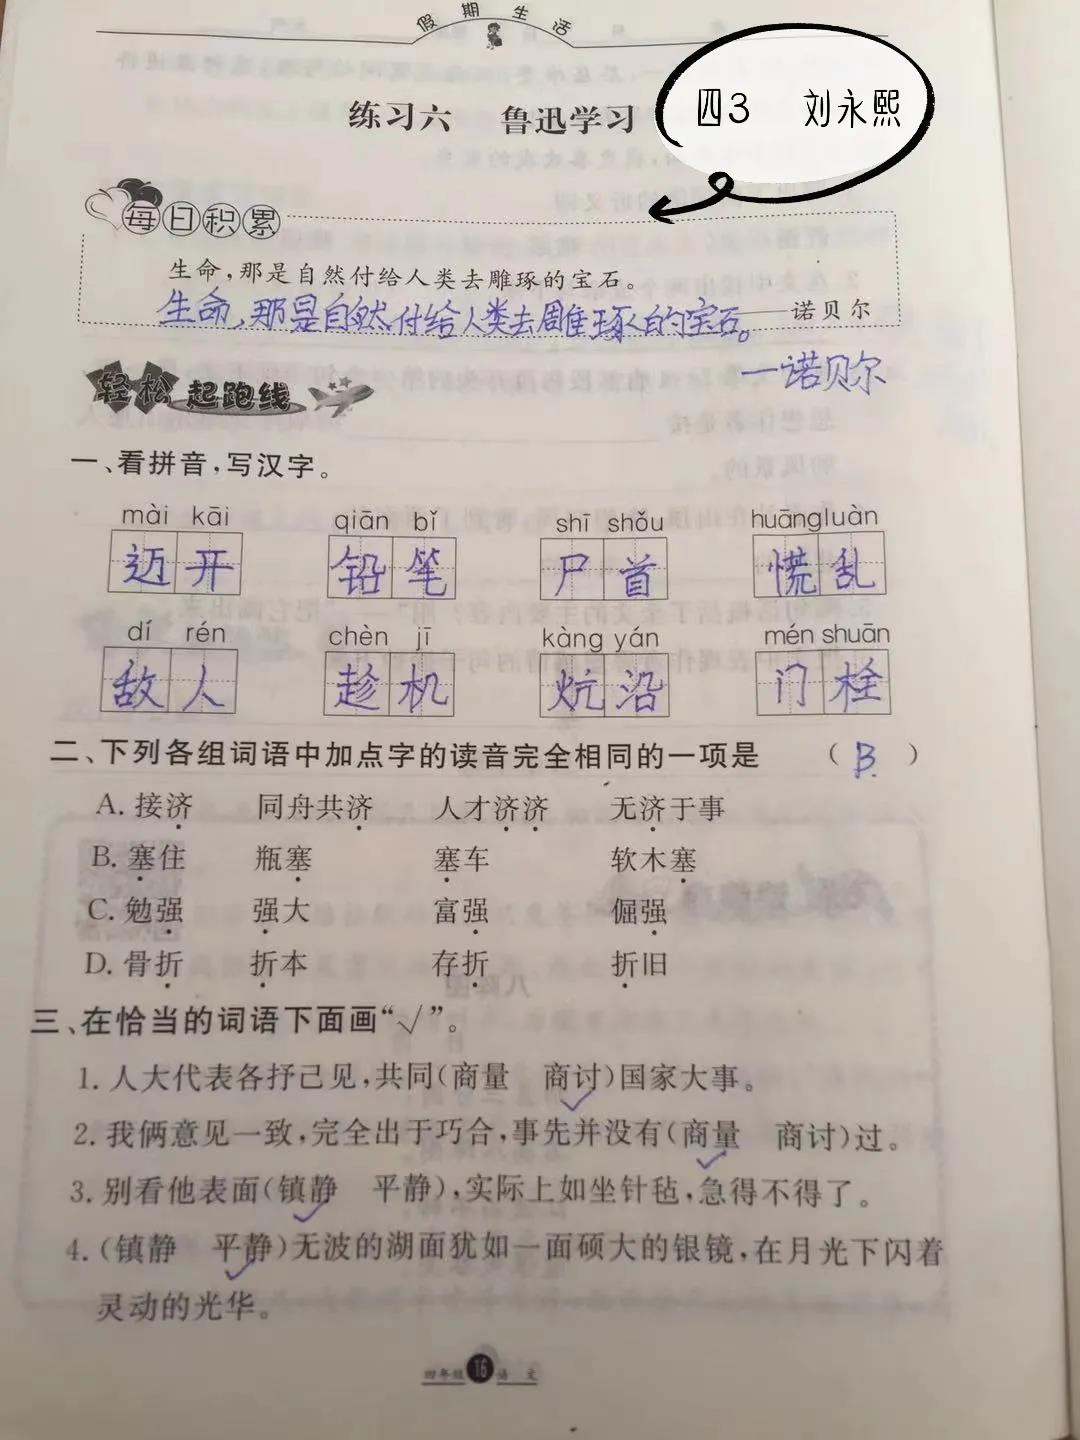 假期生活
练习六 鲁迅学习
四3 刘永熙
每日积累
生命,那是自然付给人类去雕琢的宝石。
——诺贝尔
生命,那是自然付给人类去雕琢的宝石。
一诺贝尔
轻松起跑线
一、看拼音,写汉字。
mài kāi qiān bǐ shī shǒu huāngluàn
迈开 铅笔 尸首 慌乱
dí rén chèn jī kàng yán mén shuān
敌人 趁机 炕沿 门栓
二、下列各组词语中加点字的读音完全相同的一项是 ( B. )
A. 接济 同舟共济 人才济济 无济于事
B. 塞住 瓶塞 塞车 软木塞
C. 勉强 强大 富强 倔强
D. 骨折 折本 存折 折旧
三、在恰当的词语下面画“√”。
1. 人大代表各抒己见,共同(商量 商讨)国家大事。
2. 我俩意见一致,完全出于巧合,事先并没有(商量 商讨)过。
3. 别看他表面(镇静 平静),实际上如坐针毡,急得不得了。
4. (镇静 平静)无波的湖面犹如一面硕大的银镜,在月光下闪着
灵动的光华。
四年级 16 语文